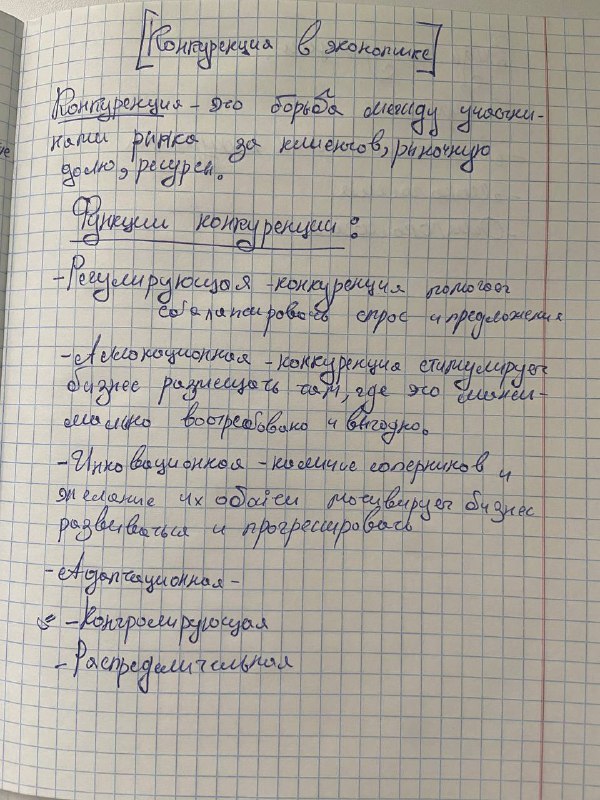 [Конкуренция в экономике]
Конкуренция - это борьба между участни-
ками рынка за клиентов, рыночную
долю, ресурсы.
Функции конкуренции:
-Регулирующая -конкуренция помогает
сбалансировать спрос и предложения
-Аллокационная -конкуренция стимулирует
бизнес размещать там, где это макси-
мально востребовано и выгодно.
-Инновационная -наличие соперников и
желание их обойти мотивирует бизнес
развиваться и прогрессировать
-Адаптационная-
-Контролирующая
-Распределительная